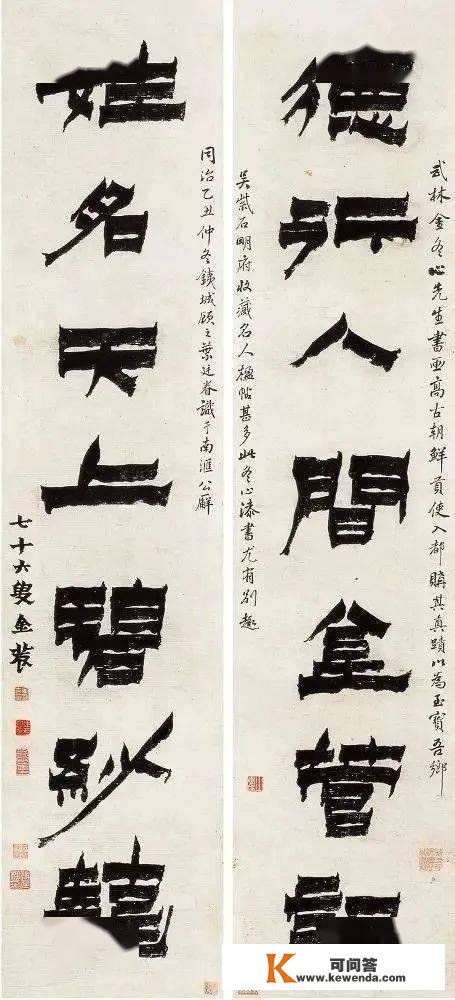 德行人間金管記
武林金冬心先生書画高古朝鮮貢使入都購其真蹟以為至寶吾鄉
吳紫石明府收藏名人楹帖甚多此冬心漆書尤有別趣
同治乙丑仲冬銕城顧之葉廷眷識于南滙公廨
姓名天上碧紗籠
七十六叟金農
可问答
www.kewenda.com